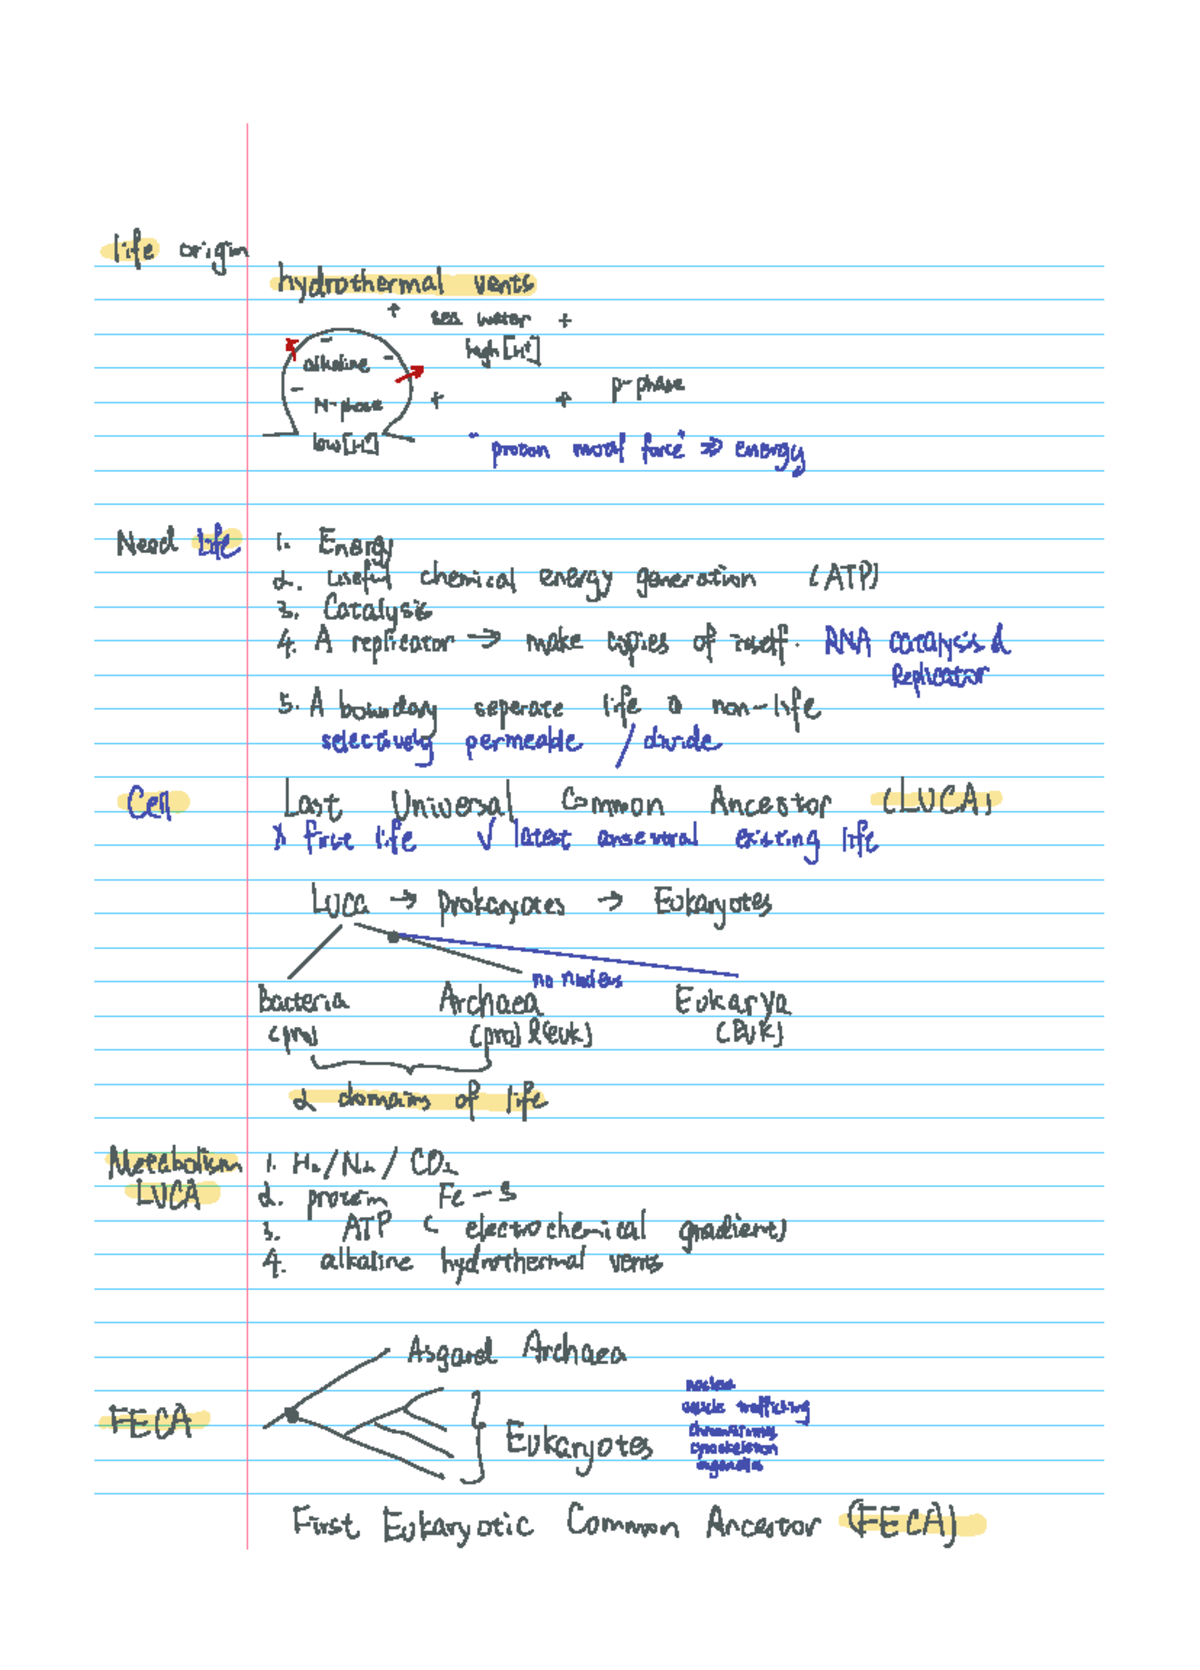 life origin
hydrothermal vents
+ sea water +
high [H+]
alkaline
N-phase
low [H+]
+ + p-phase
"proton motif force" => energy
Need life
1. Energy
2. useful chemical energy generation (ATP)
3. Catalysis
4. A replicator → make copies of itself. RNA catalysis &
Replicator
5. A boundary seperate life & non-life
selectively permeable / divide
Cell
Last Universal Common Ancestor (LUCA)
X first life √ latest ansestral existing life
LUCA → Prokaryotes → Eukaryotes
no nucleus
Bacteria Archaea Eukarya
(pro) (pro) & (euk) (Euk)
2 domains of life
Metabolism
LUCA
1. H₂/N₂/CO₂
2. protein Fe-S
3. ATP (electrochemical gradient)
4. alkaline hydrothermal vents
FECA
Asgard Archaea
Eukaryotes
nucleus
vesicle trafficking
chromosomes
cytoskeleton
organelles
First Eukaryotic Common Ancestor (FECA)